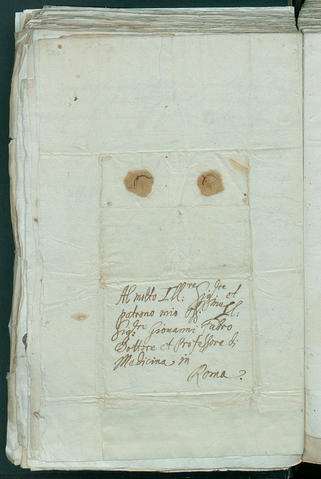 Al molto Ill.re Sig.re et
patrono mio oss.mo Il
Sig.re Giovanni Fabro
Dottore et Professore di
Medicina, in
Roma.